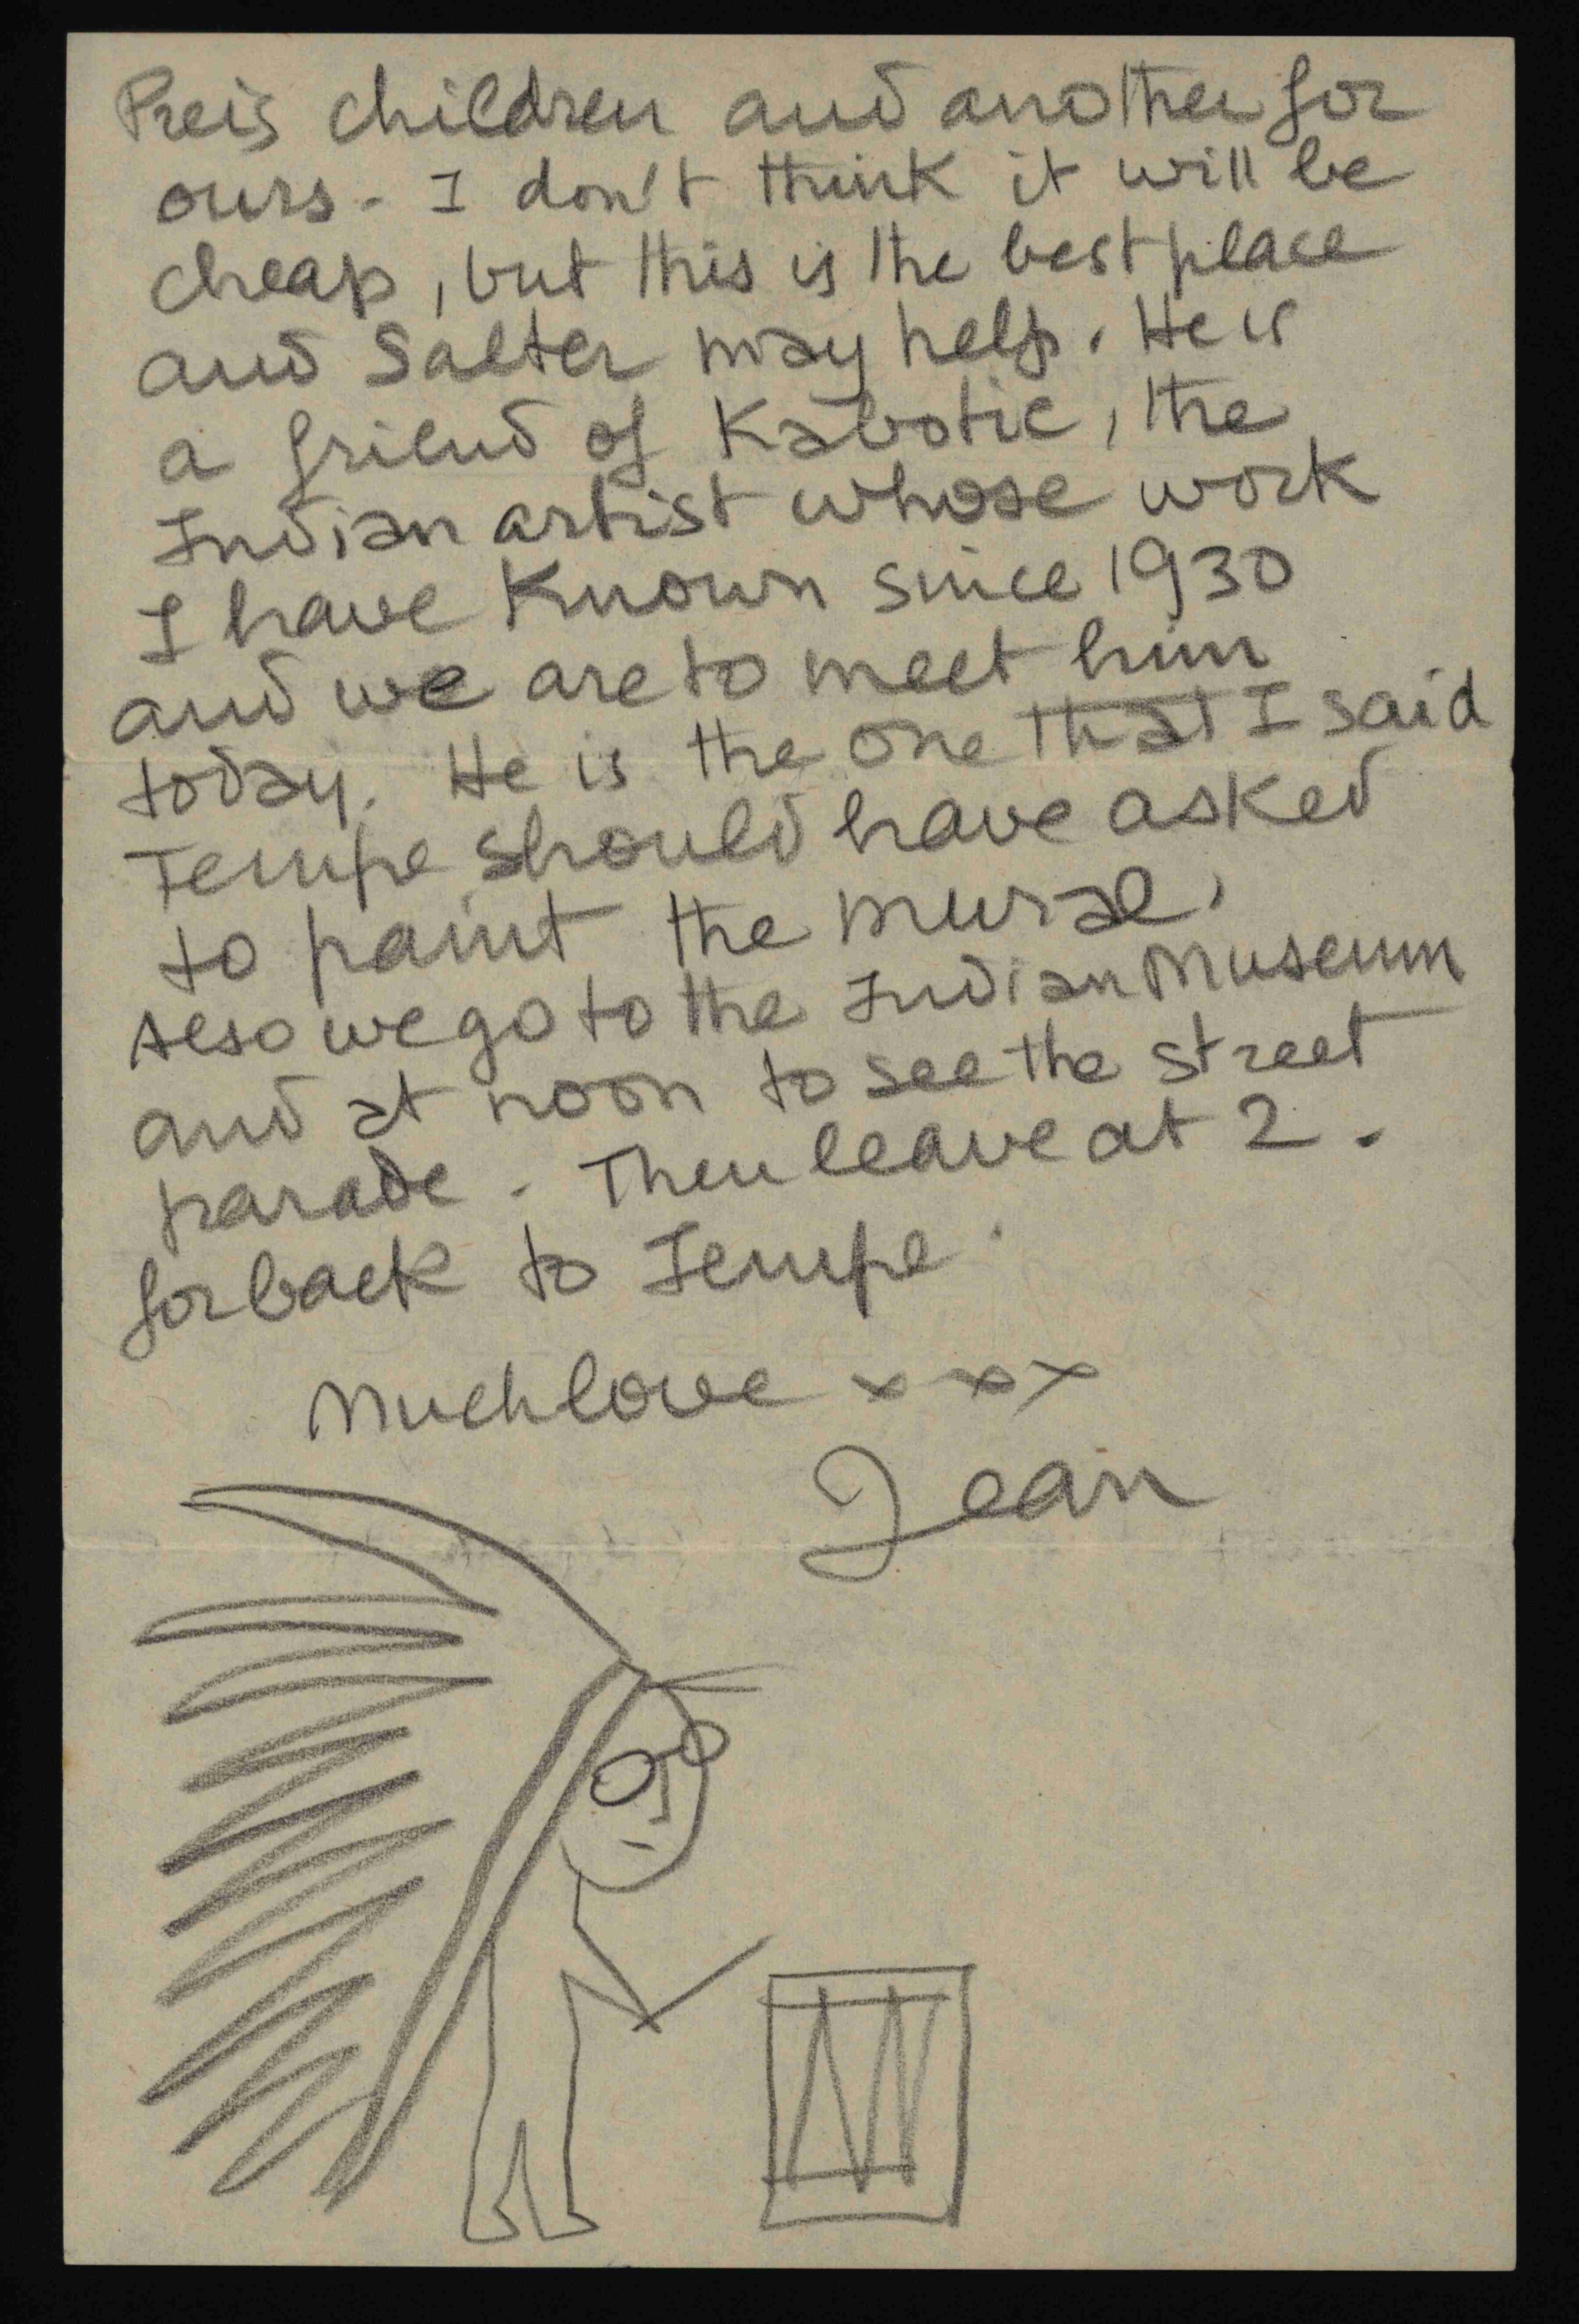 Preis children and another for
ours. I don't think it will be
cheap, but this is the best place
and Salter may help. He is
a friend of Kabotie, the
Indian artist whose work
I have known since 1930
and we are to meet him
today. He is the one that I said
Tempe should have asked
to paint the mural.
Also we go to the Indian Museum
and at noon to see the street
parade. Then leave at 2.
for back to Tempe.
Much love x x x
Jean